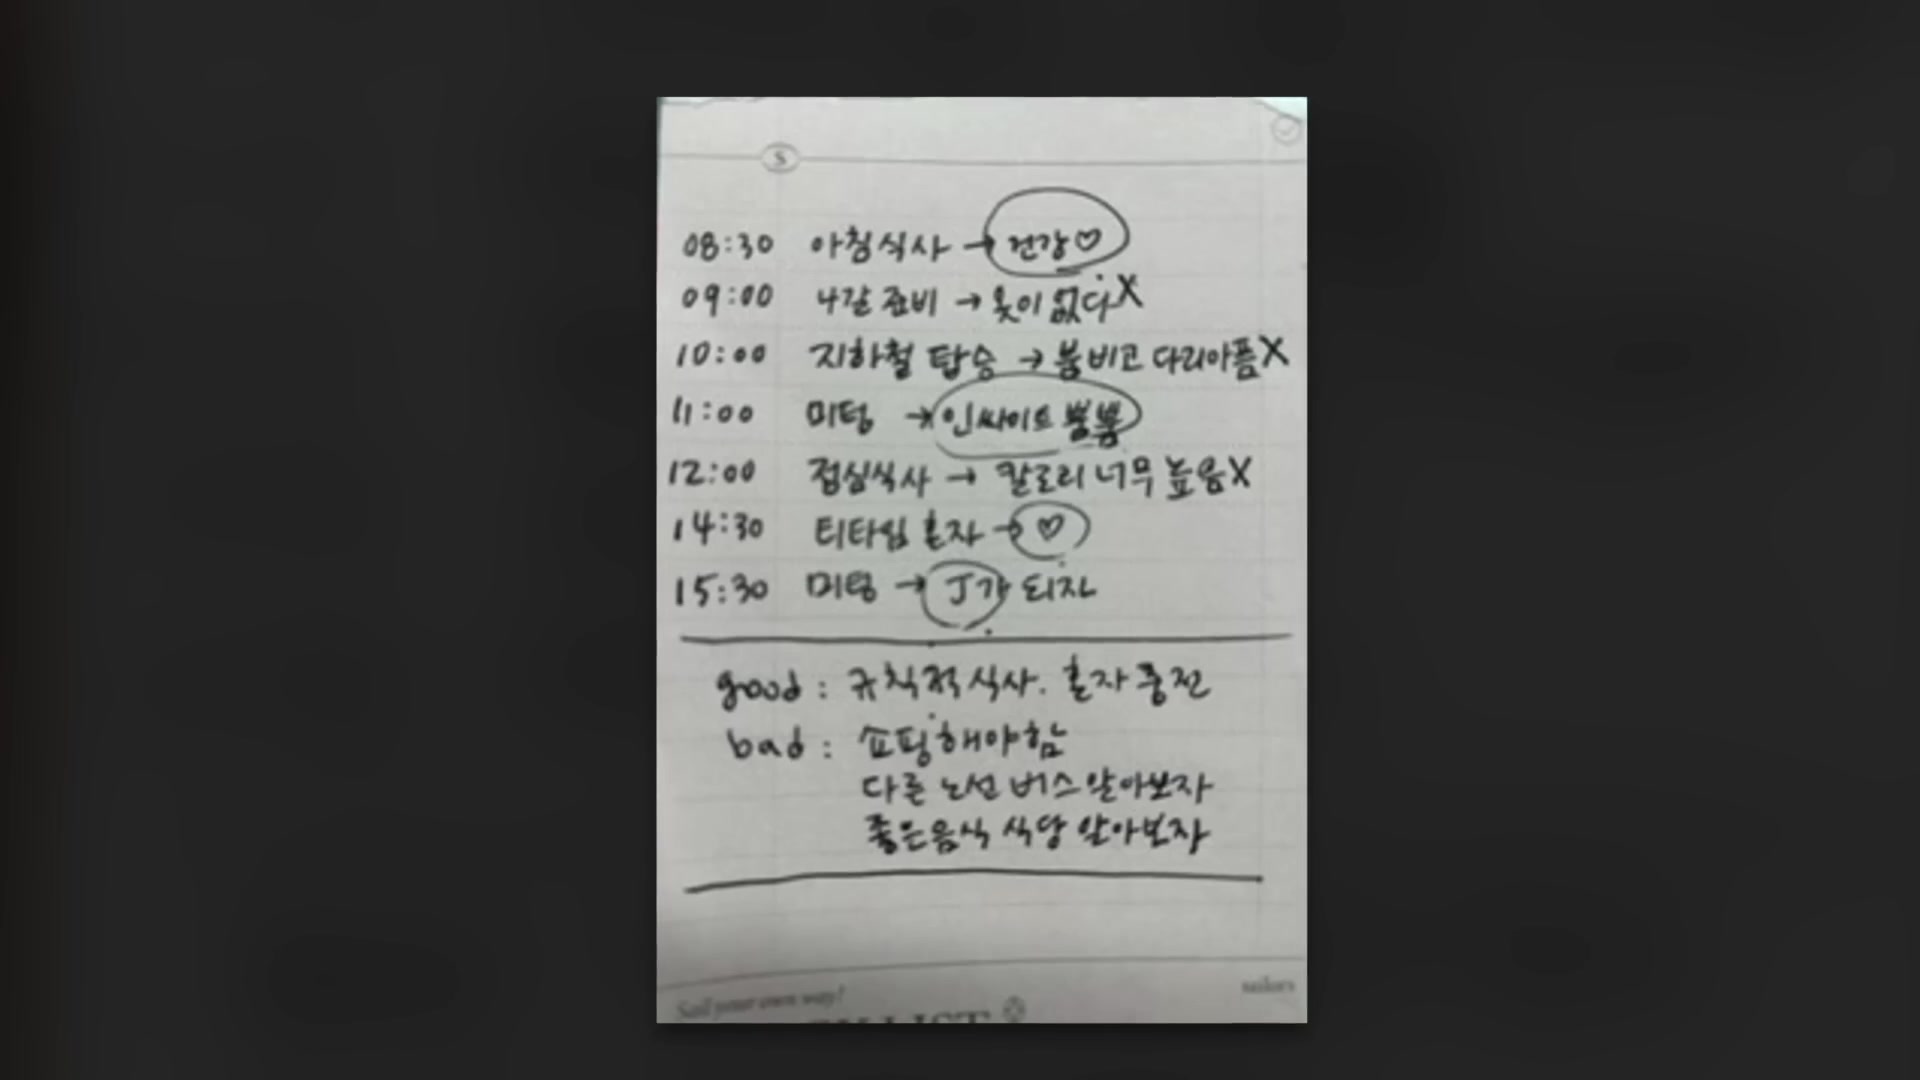 S
08:30 아침식사 → 건강♡
09:00 나갈 준비 → 옷이 없다 X
10:00 지하철 탑승 → 붐비고 다리아픔 X
11:00 미팅 → 인싸이트 뿜뿜
12:00 점심식사 → 칼로리 너무 높음 X
14:30 티타임 혼자 → ♡
15:30 미팅 → J가 되자
good : 규칙적 식사. 혼자 충전
bad : 쇼핑해야함
다른 노선 버스 알아보자
좋은음식 식당 알아보자
Sail your own way!
sailors
LIST